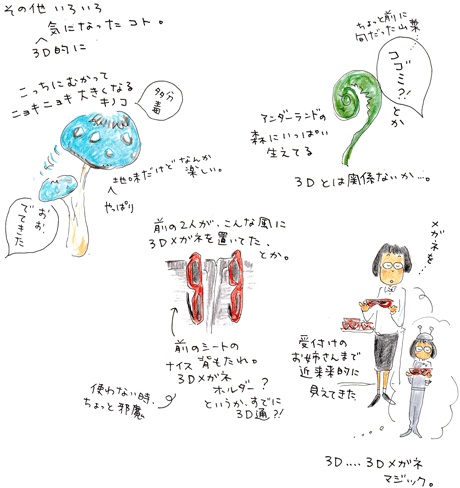 その他 いろいろ
気になった コト。
3D的に
こっちにむかって
ニョキニョキ 大きくなる
キノコ
多分
毒
地味だけど なんか
楽しい。
やっぱり
おお、
でてきた
ちょっと前に
旬だった山菜
コゴミ?!
とか
アンダーランドの
森にいっぱい
生えてる
3Dとは関係ないか…。
前の2人が、こんな風に
3Dメガネを置いてた、
とか。
前のシートの
ナイス 背もたれ。
3Dメガネ
ホルダー?
というか、すでに
3D通?!
使わない時、
ちょっと邪魔
メガネを…
受付けの
お姉さんまで
近未来的に
見えてきた
3D....3Dメガネ
マジック。